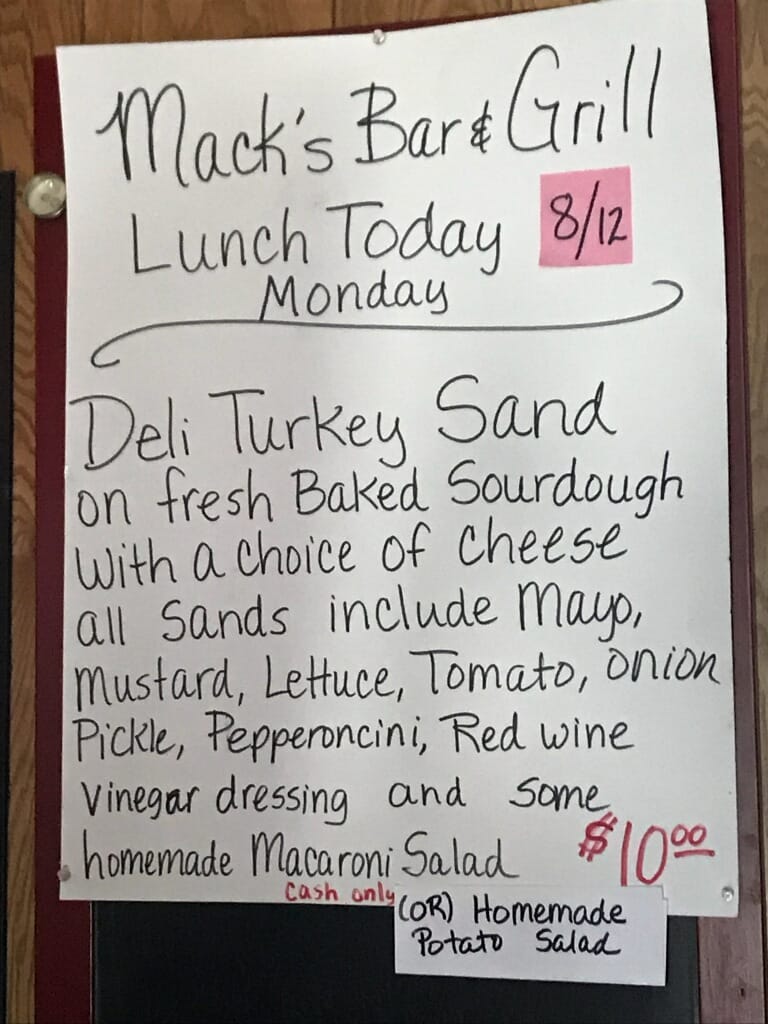 Mack's Bar & Grill
Lunch Today 8/12
Monday
Deli Turkey Sand
on fresh Baked Sourdough
With a choice of cheese
all Sands include Mayo,
Mustard, Lettuce, Tomato, onion
Pickle, Pepperoncini, Red wine
vinegar dressing and some
homemade Macaroni Salad $10.00
cash only
(OR) Homemade
Potato Salad